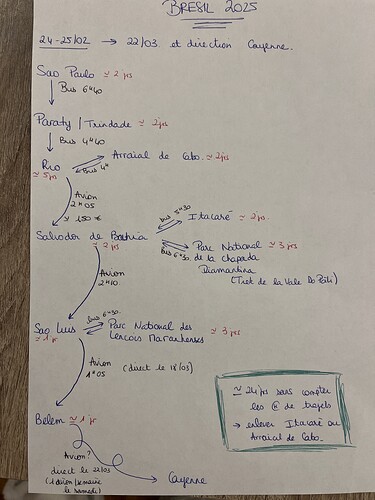 BRESIL 2025
24-25/02 → 22/03 et direction Cayenne.
Sao Paulo ≃ 2 jrs
Bus 6h40
Paraty / Trindade ≃ 2jrs
Bus 4h40
Rio
≃ 5 jrs
Bus 4h
Arraial de Cabo. ≃ 2jrs
Avion
2h05
≃ 150 €
Salvador de Bahia
≃ 2 jrs
bus 5h30
Itacaré ≃ 2 jrs.
bus 6h30.
Parc National ≃ 3 jrs
de la chapada
Diamantina
(Trek de la Vale do Pati)
Avion
2h10
Sao Luis
≃ 1 jr
bus 6h30.
Parc National des ≃ 3 jrs
Lençois Maranhenses
Avion
1h05
(direct le 18/03)
Belem ≃ 1 jr
Avion?
direct le 22/03
(1 avion/semaine
le samedi)
Cayenne
≃ 24 jrs sans compter
les (h) de trajets
→ enlever Itacaré ou
Arraial de Cabo.